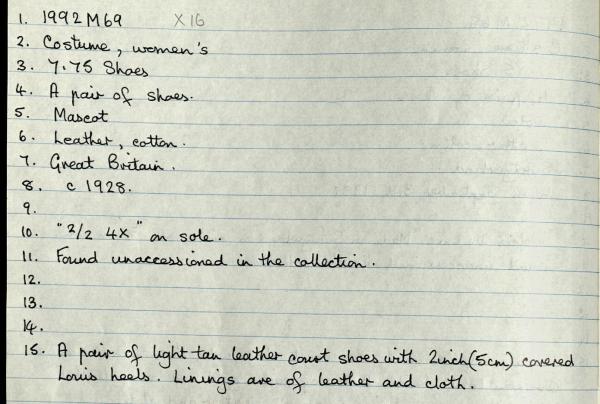 1. 1992 M69 X16
2. Costume, women's
3. 7.75 Shoes
4. A pair of shoes.
5. Mascot
6. Leather, cotton.
7. Great Britain.
8. c 1928.
9.
10. "2/2 4X" on sole.
11. Found unaccessioned in the collection.
12.
13.
14.
15. A pair of light tan leather court shoes with 2inch (5cm) covered
Louis heels. Linings are of leather and cloth.